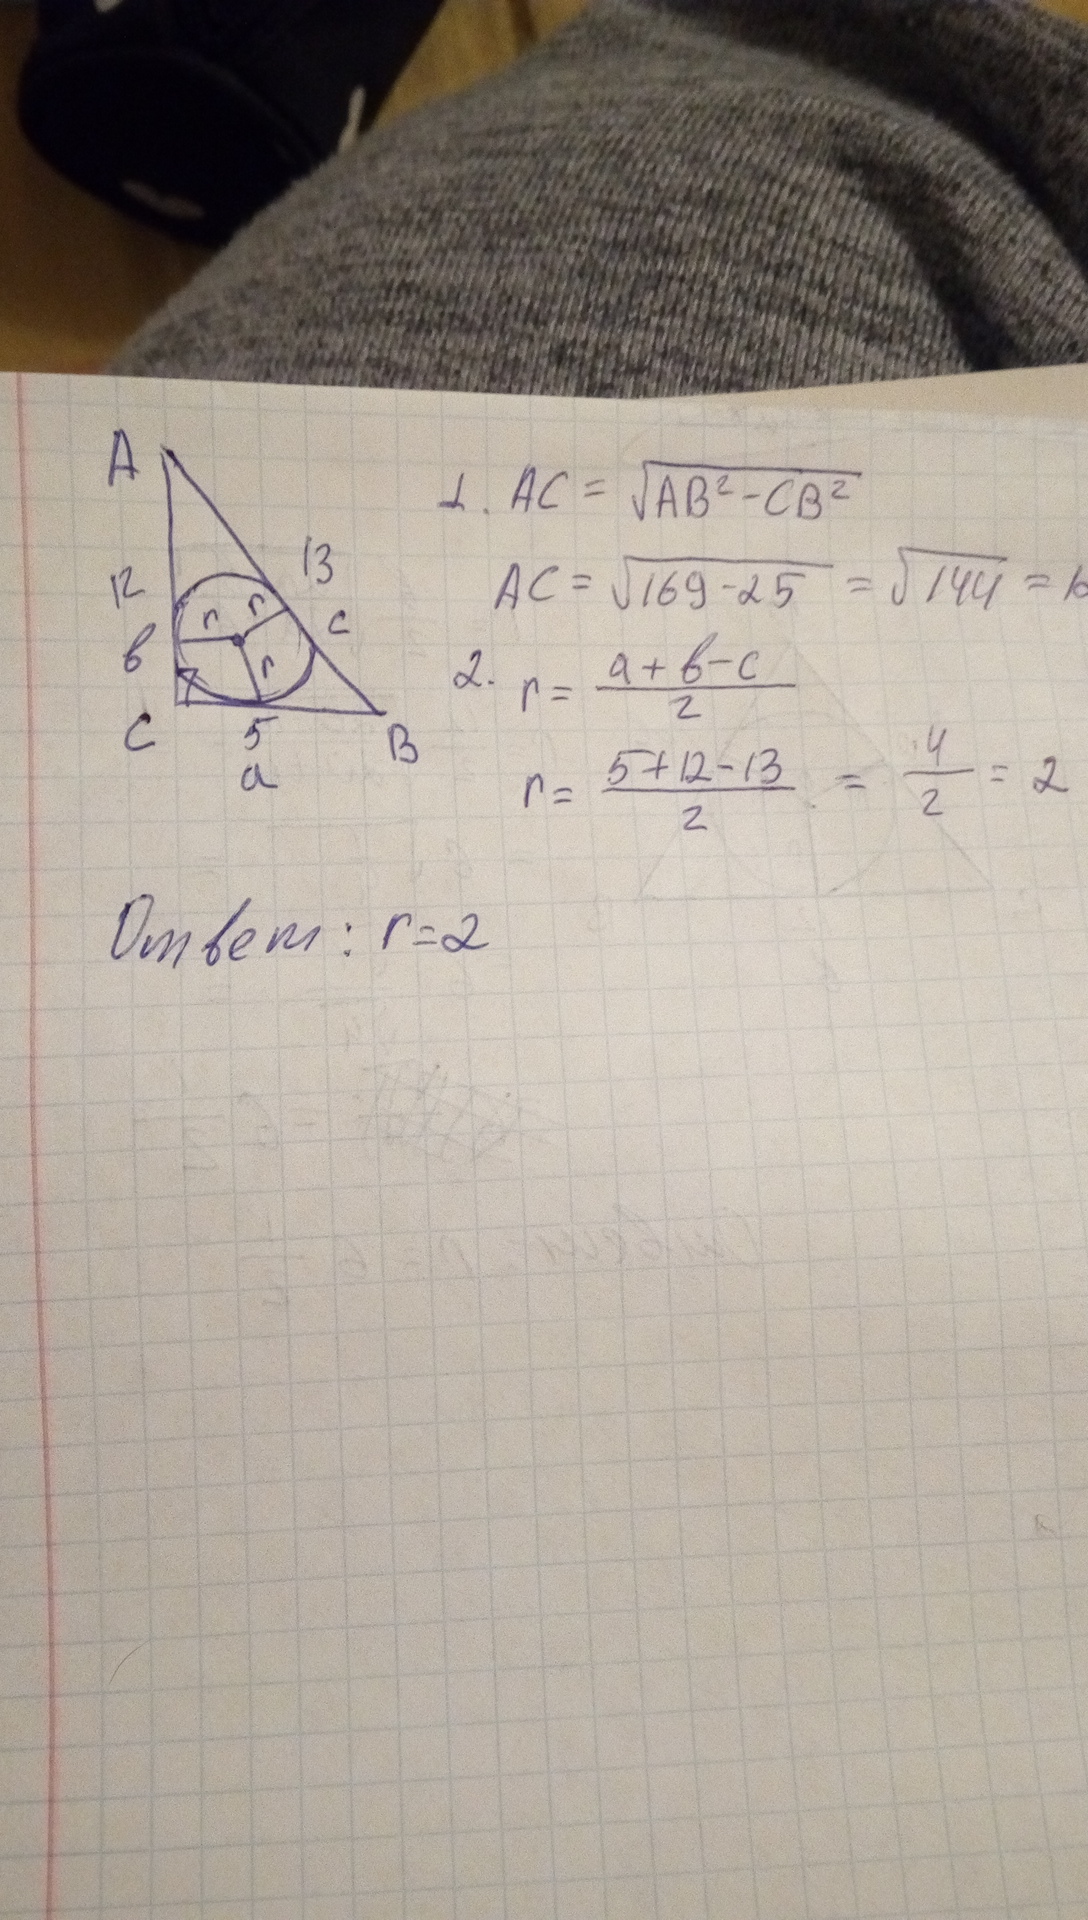 A
12
13
r r
в
r
c
C
5
B
a
1. AC = √AB² - CB²
AC = √169 - 25 = √144 = 12
2. r = a + в - c / 2
r = 5 + 12 - 13 / 2 = 4 / 2 = 2
Ответ: r = 2